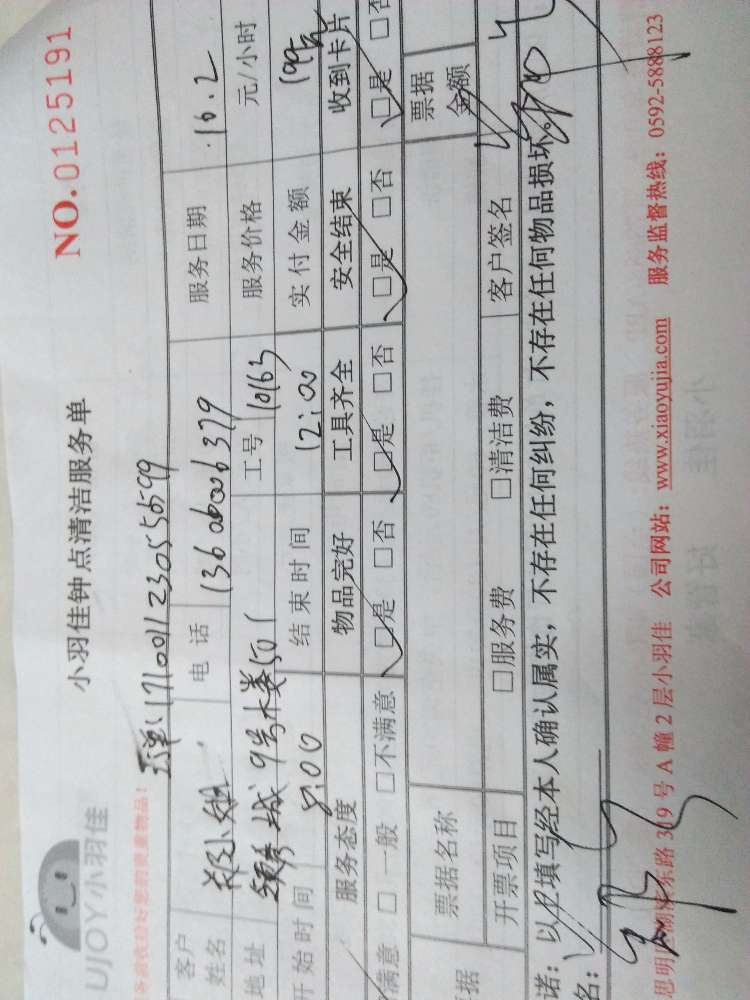 UJOY小羽佳
小羽佳钟点清洁服务单
NO.0125191
客户姓名 郑小姐 电话 13606006379 服务日期 .16.2
地址 9号楼501 工号 10163 服务价格 元/小时
开始时间 8:00 结束时间 12:00 实付金额 199元
服务态度 物品完好 工具齐全 安全结束 收到卡片
满意 □一般 □不满意 □是 □否 □是 □否 □是 □否 □是 □否
票据名称 票据金额
据 开票项目 □服务费 □清洁费 客户签名
诺：以上填写经本人确认属实，不存在任何纠纷，不存在任何物品损坏。
名：
思明区湖滨东路319号A幢2层小羽佳 公司网站：www.xiaoyujia.com 服务监督热线：0592-5888123